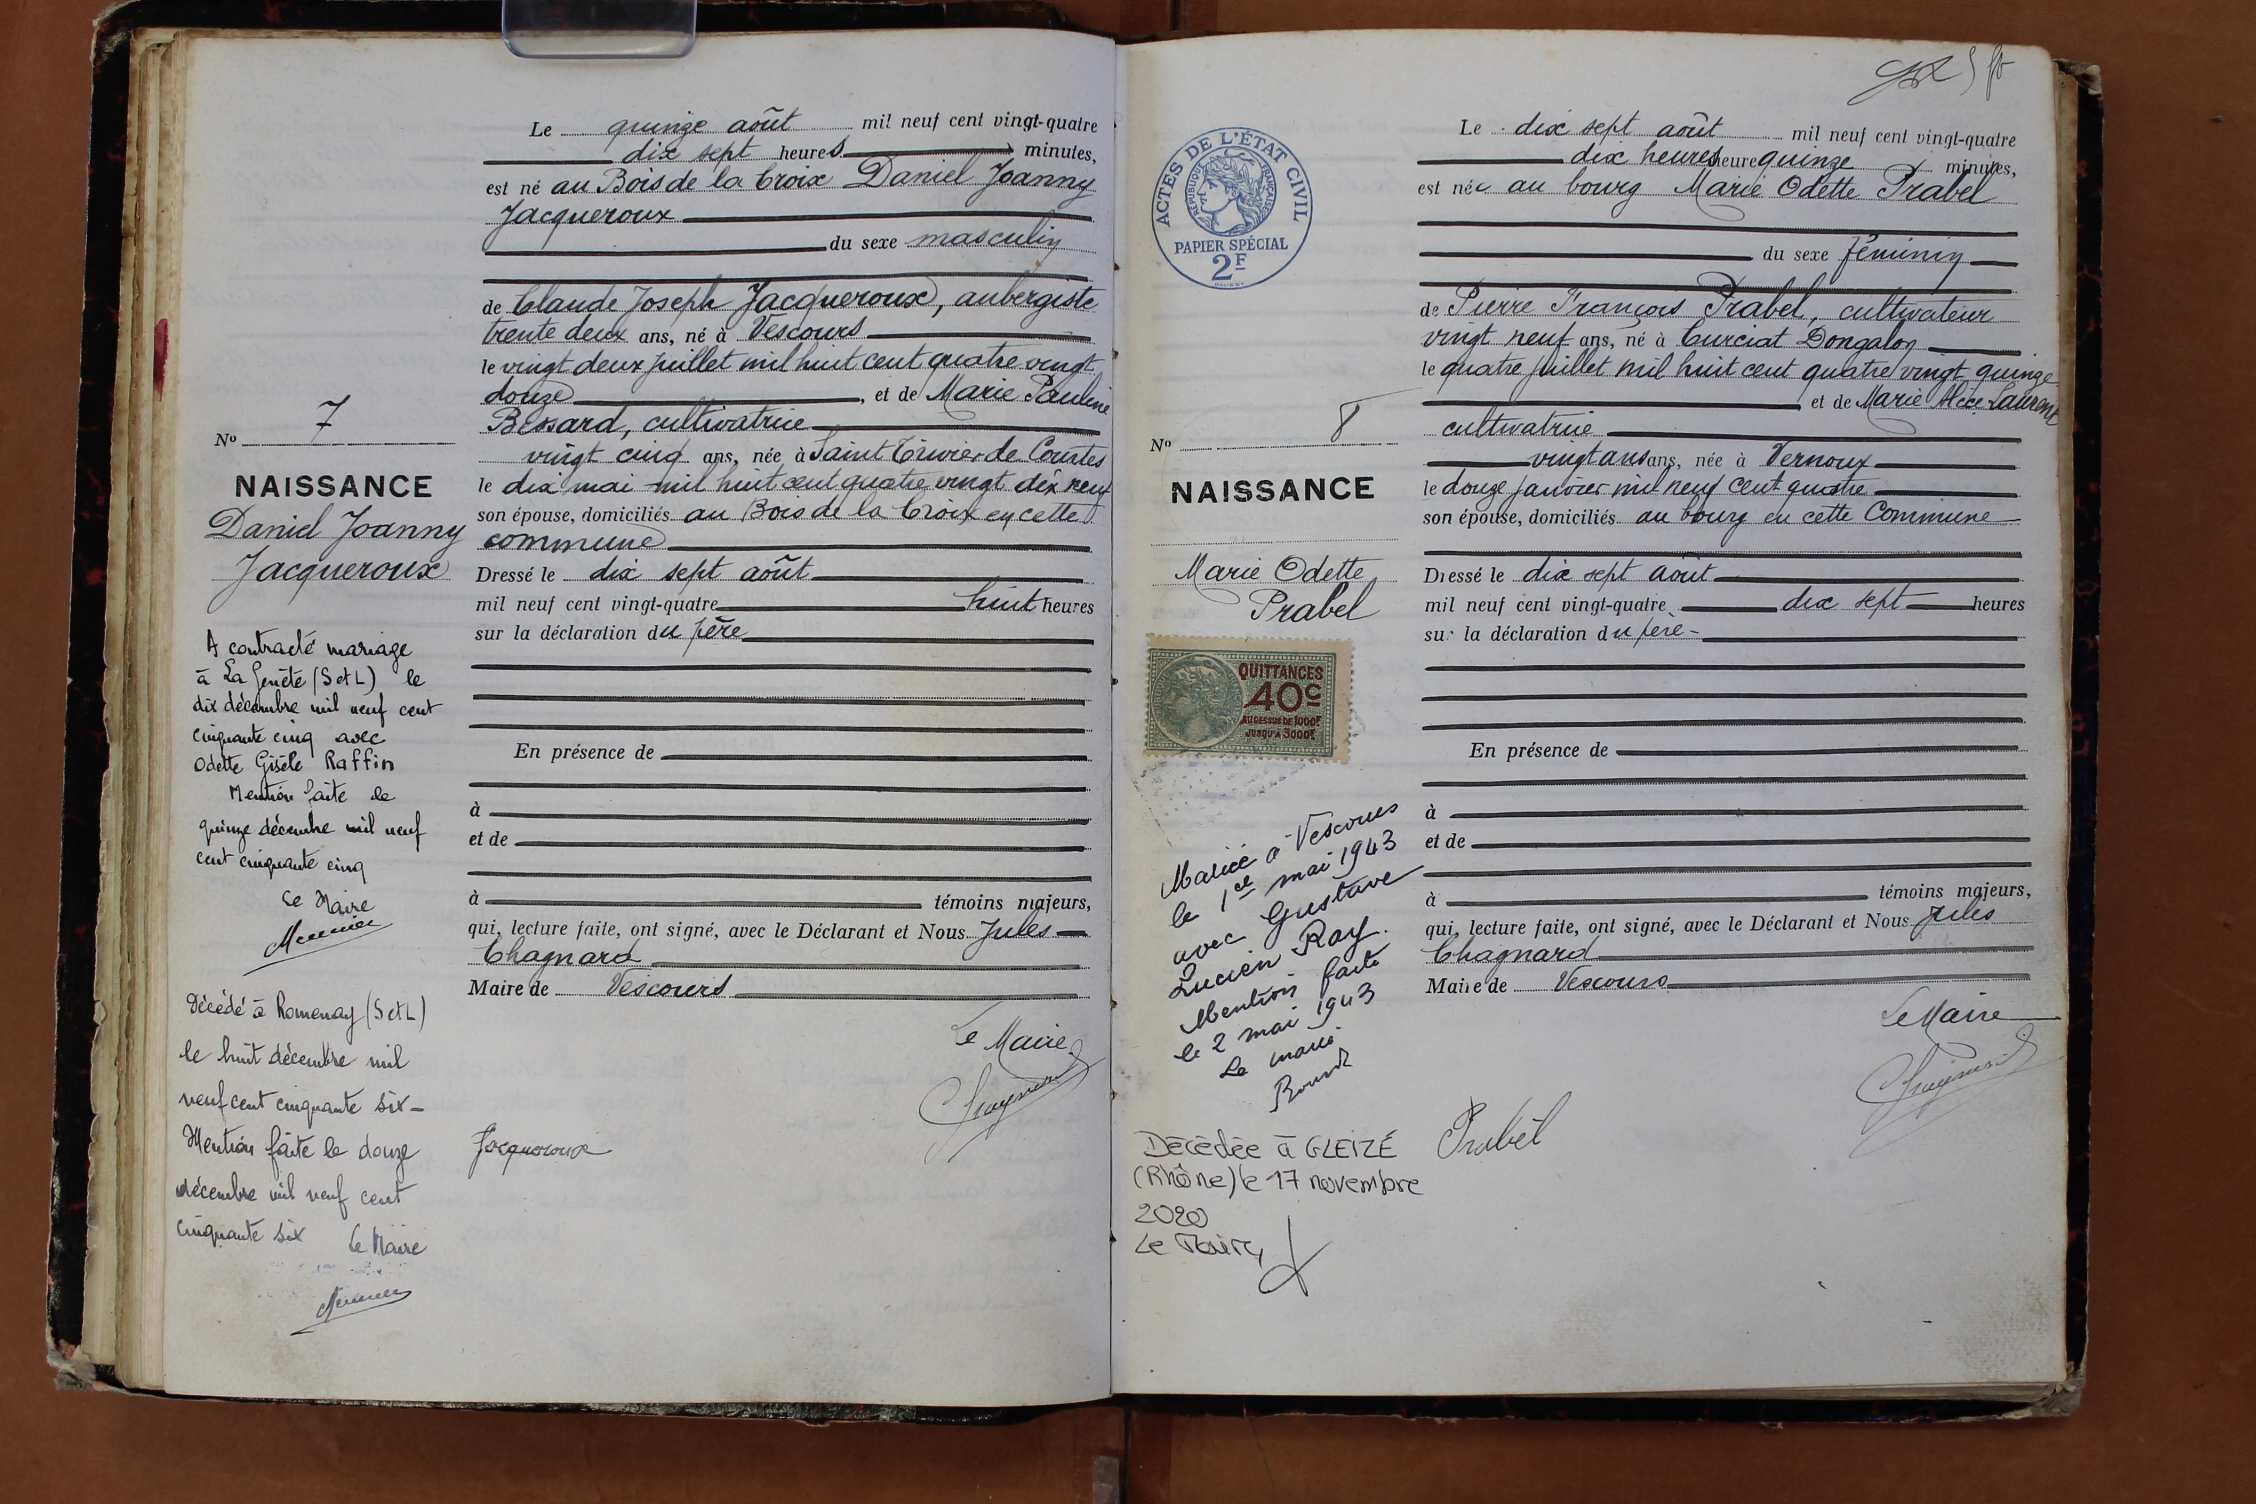 Le quinze août mil neuf cent vingt-quatre
dix sept heures minutes,
est né au Bois de la Croix Daniel Joanny
Jacqueroux
du sexe masculin
de Claude Joseph Jacqueroux, aubergiste
trente deux ans, né à Vescours
le vingt deux juillet mil huit cent quatre vingt
douze, et de Marie Pauline
Bessard, cultivatrice
vingt cinq ans, née à Saint Trivier de Courtes
le dix mai mil huit cent quatre vingt dix neuf
son épouse, domiciliés au Bois de la Croix en cette
commune
Dressé le dix sept août
mil neuf cent vingt-quatre huit heures
sur la déclaration du père
En présence de
à
et de
à témoins majeurs,
qui, lecture faite, ont signé, avec le Déclarant et Nous Jules
Chagnard
Maire de Vescours
Le Maire
Jacqueroux
No 7
NAISSANCE
Daniel Joanny
Jacqueroux
A contracté mariage
à La Genête (S et L) le
dix décembre mil neuf cent
cinquante cinq avec
Odette Gisèle Raffin
Mention faite le
quinze décembre mil neuf
cent cinquante cinq
Le Maire
Meunier
Décédé à Romenay (S et L)
le huit décembre mil
neuf cent cinquante six
Mention faite le douze
décembre mil neuf cent
cinquante six Le Maire
Meunier
ACTES DE L'ÉTAT CIVIL
RÉPUBLIQUE FRANÇAISE
PAPIER SPÉCIAL
2F
Le dix sept août mil neuf cent vingt-quatre
dix heures heure quinze minutes,
est née au bourg Marie Odette Prabel
du sexe féminin
de Pierre François Prabel, cultivateur
vingt neuf ans, né à Curciat Dongalon
le quatre juillet mil huit cent quatre vingt quinze
et de Marie Alice Laurent
cultivatrice
vingt ans ans, née à Vernoux
le douze janvier mil neuf cent quatre
son épouse, domiciliés au bourg en cette Commune
Dressé le dix sept août
mil neuf cent vingt-quatre dix sept heures
sur la déclaration du père
En présence de
à
et de
à témoins majeurs,
qui, lecture faite, ont signé, avec le Déclarant et Nous Jules
Chagnard
Maire de Vescours
Le Maire
Prabel
No 8
NAISSANCE
Marie Odette
Prabel
QUITTANCES
40c
AU DESSUS DE 1000F
JUSQU'À 3000F
Mariée à Vescours
le 1er mai 1943
avec Gustave
Lucien Ray.
Mention faite
le 2 mai 1943
Le maire
Décédée à GLEIZÉ
(Rhône) le 17 novembre
2020
Le Maire,